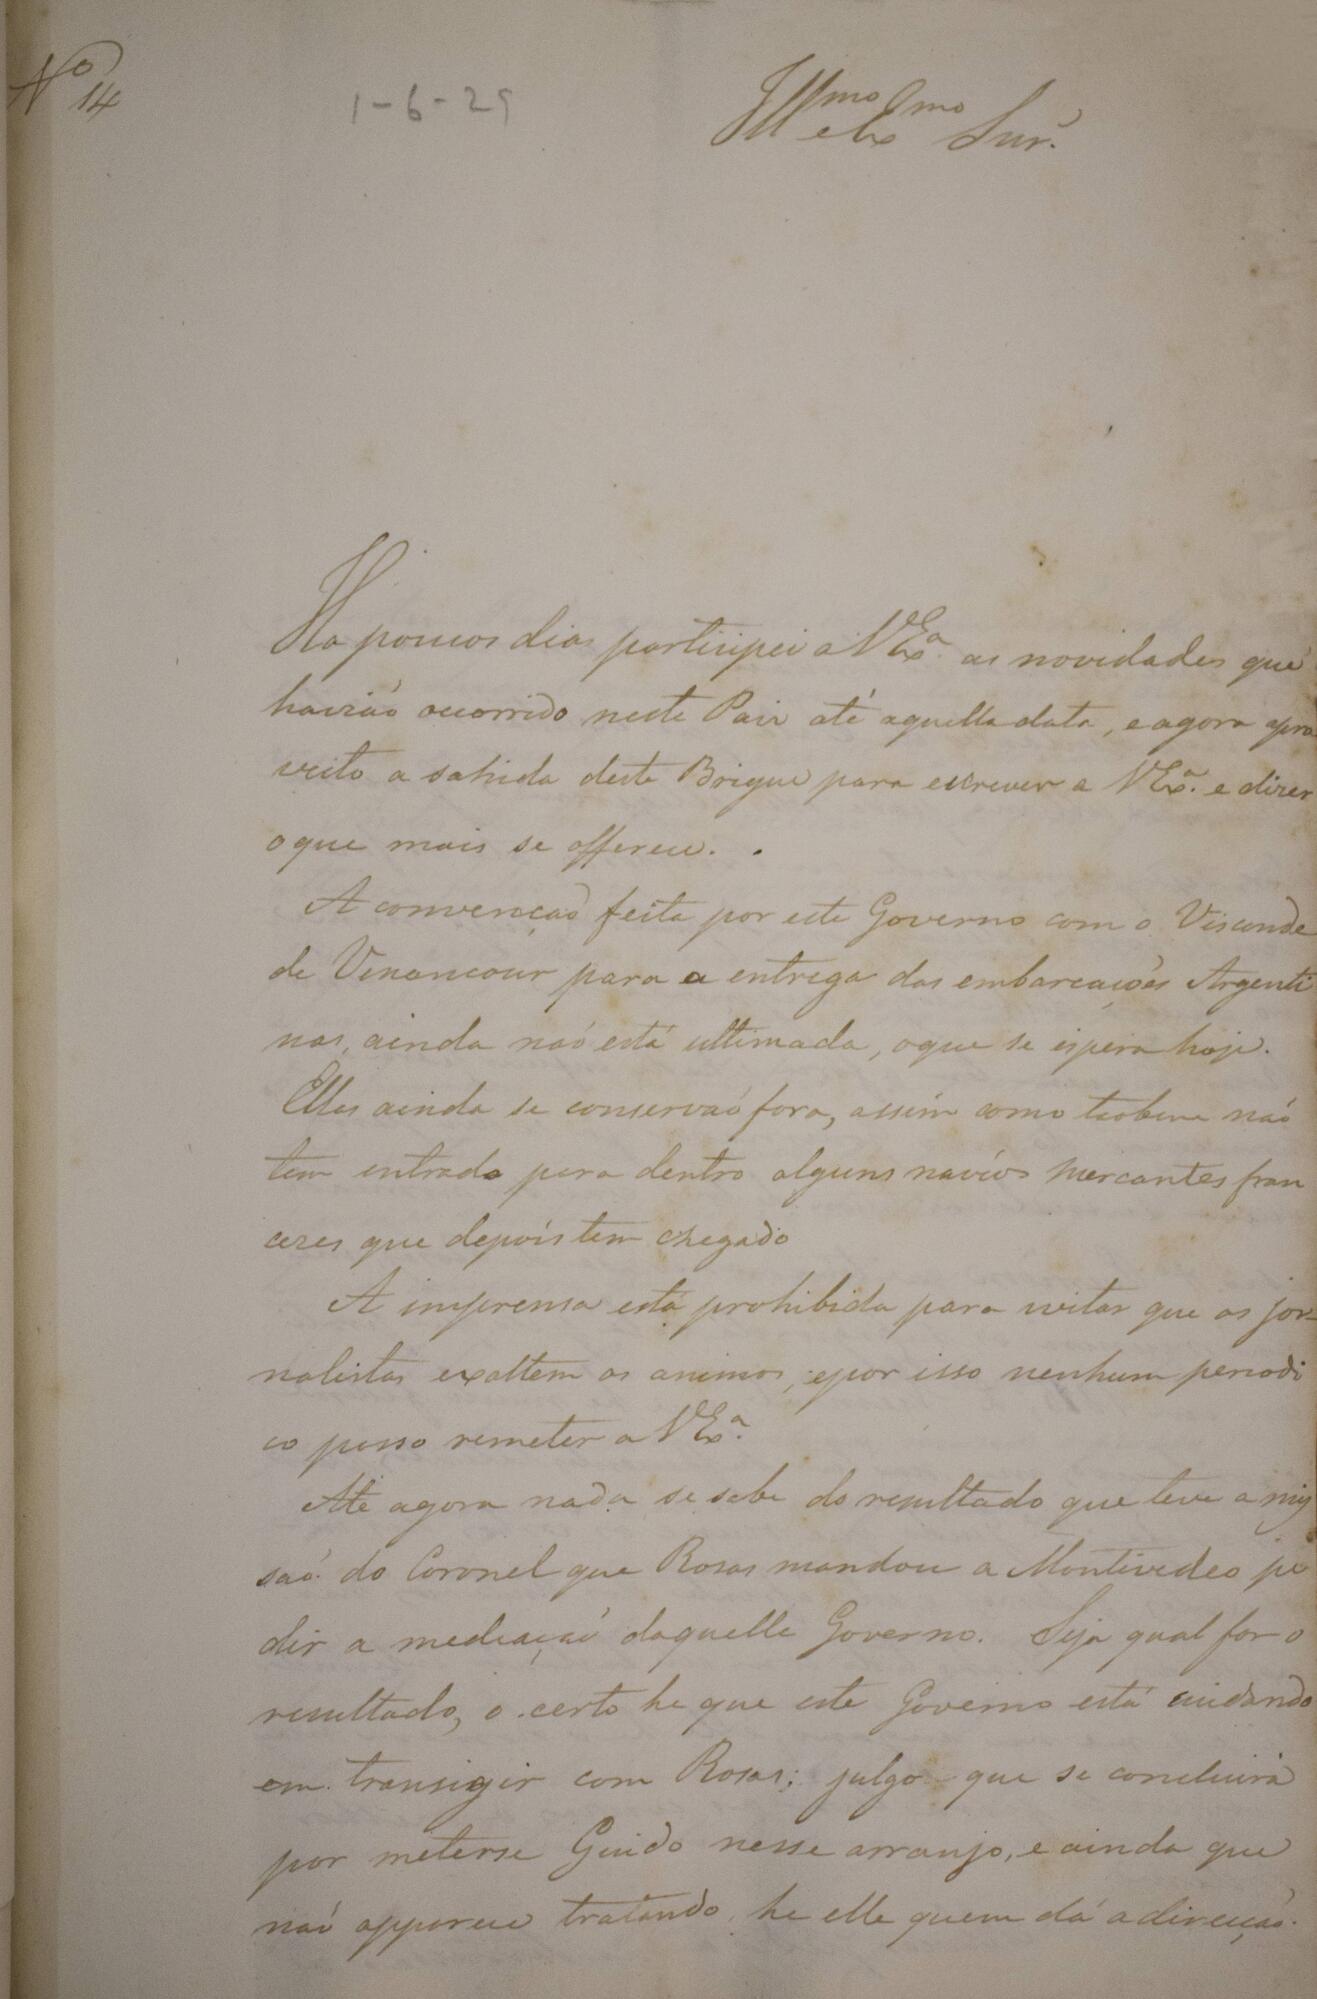 Nº 14
1-6-29
Illmo e Exmo Snr.
Ha poucos dias participei a VExª. as novidades que
havião occorrido neste Paiz até aquella data, e agora apro
veito a sahida deste Brigue para escrever a VExª. e dizer
o que mais se offerece.
A convenção feita por este Governo com o Visconde
de Venancour para a entrega das embarcações Argenti
nas, ainda não está ultimada, o que se espera hoje.
Ellas ainda se conservão fora, assim como tãobem não
tem entrado para dentro alguns navios mercantes fran
cezes que depois tem chegado
A imprensa está prohibida para evitar que os jor-
nalistas exaltem os animos, e por isso nenhum periodi
co posso remeter a VExª.
Até agora nada se sabe do resultado que teve a mis
saõ do Coronel que Rosas mandou a Montevideo pe
dir a mediação daquelle Governo. Seja qual for o
resultado, o certo he que este Governo está cuidando
em transigir com Rosas; julgo que se concluirá
por meterse Guido nesse arranjo, e ainda que
não apparece tratando, he elle quem dá a direcção.